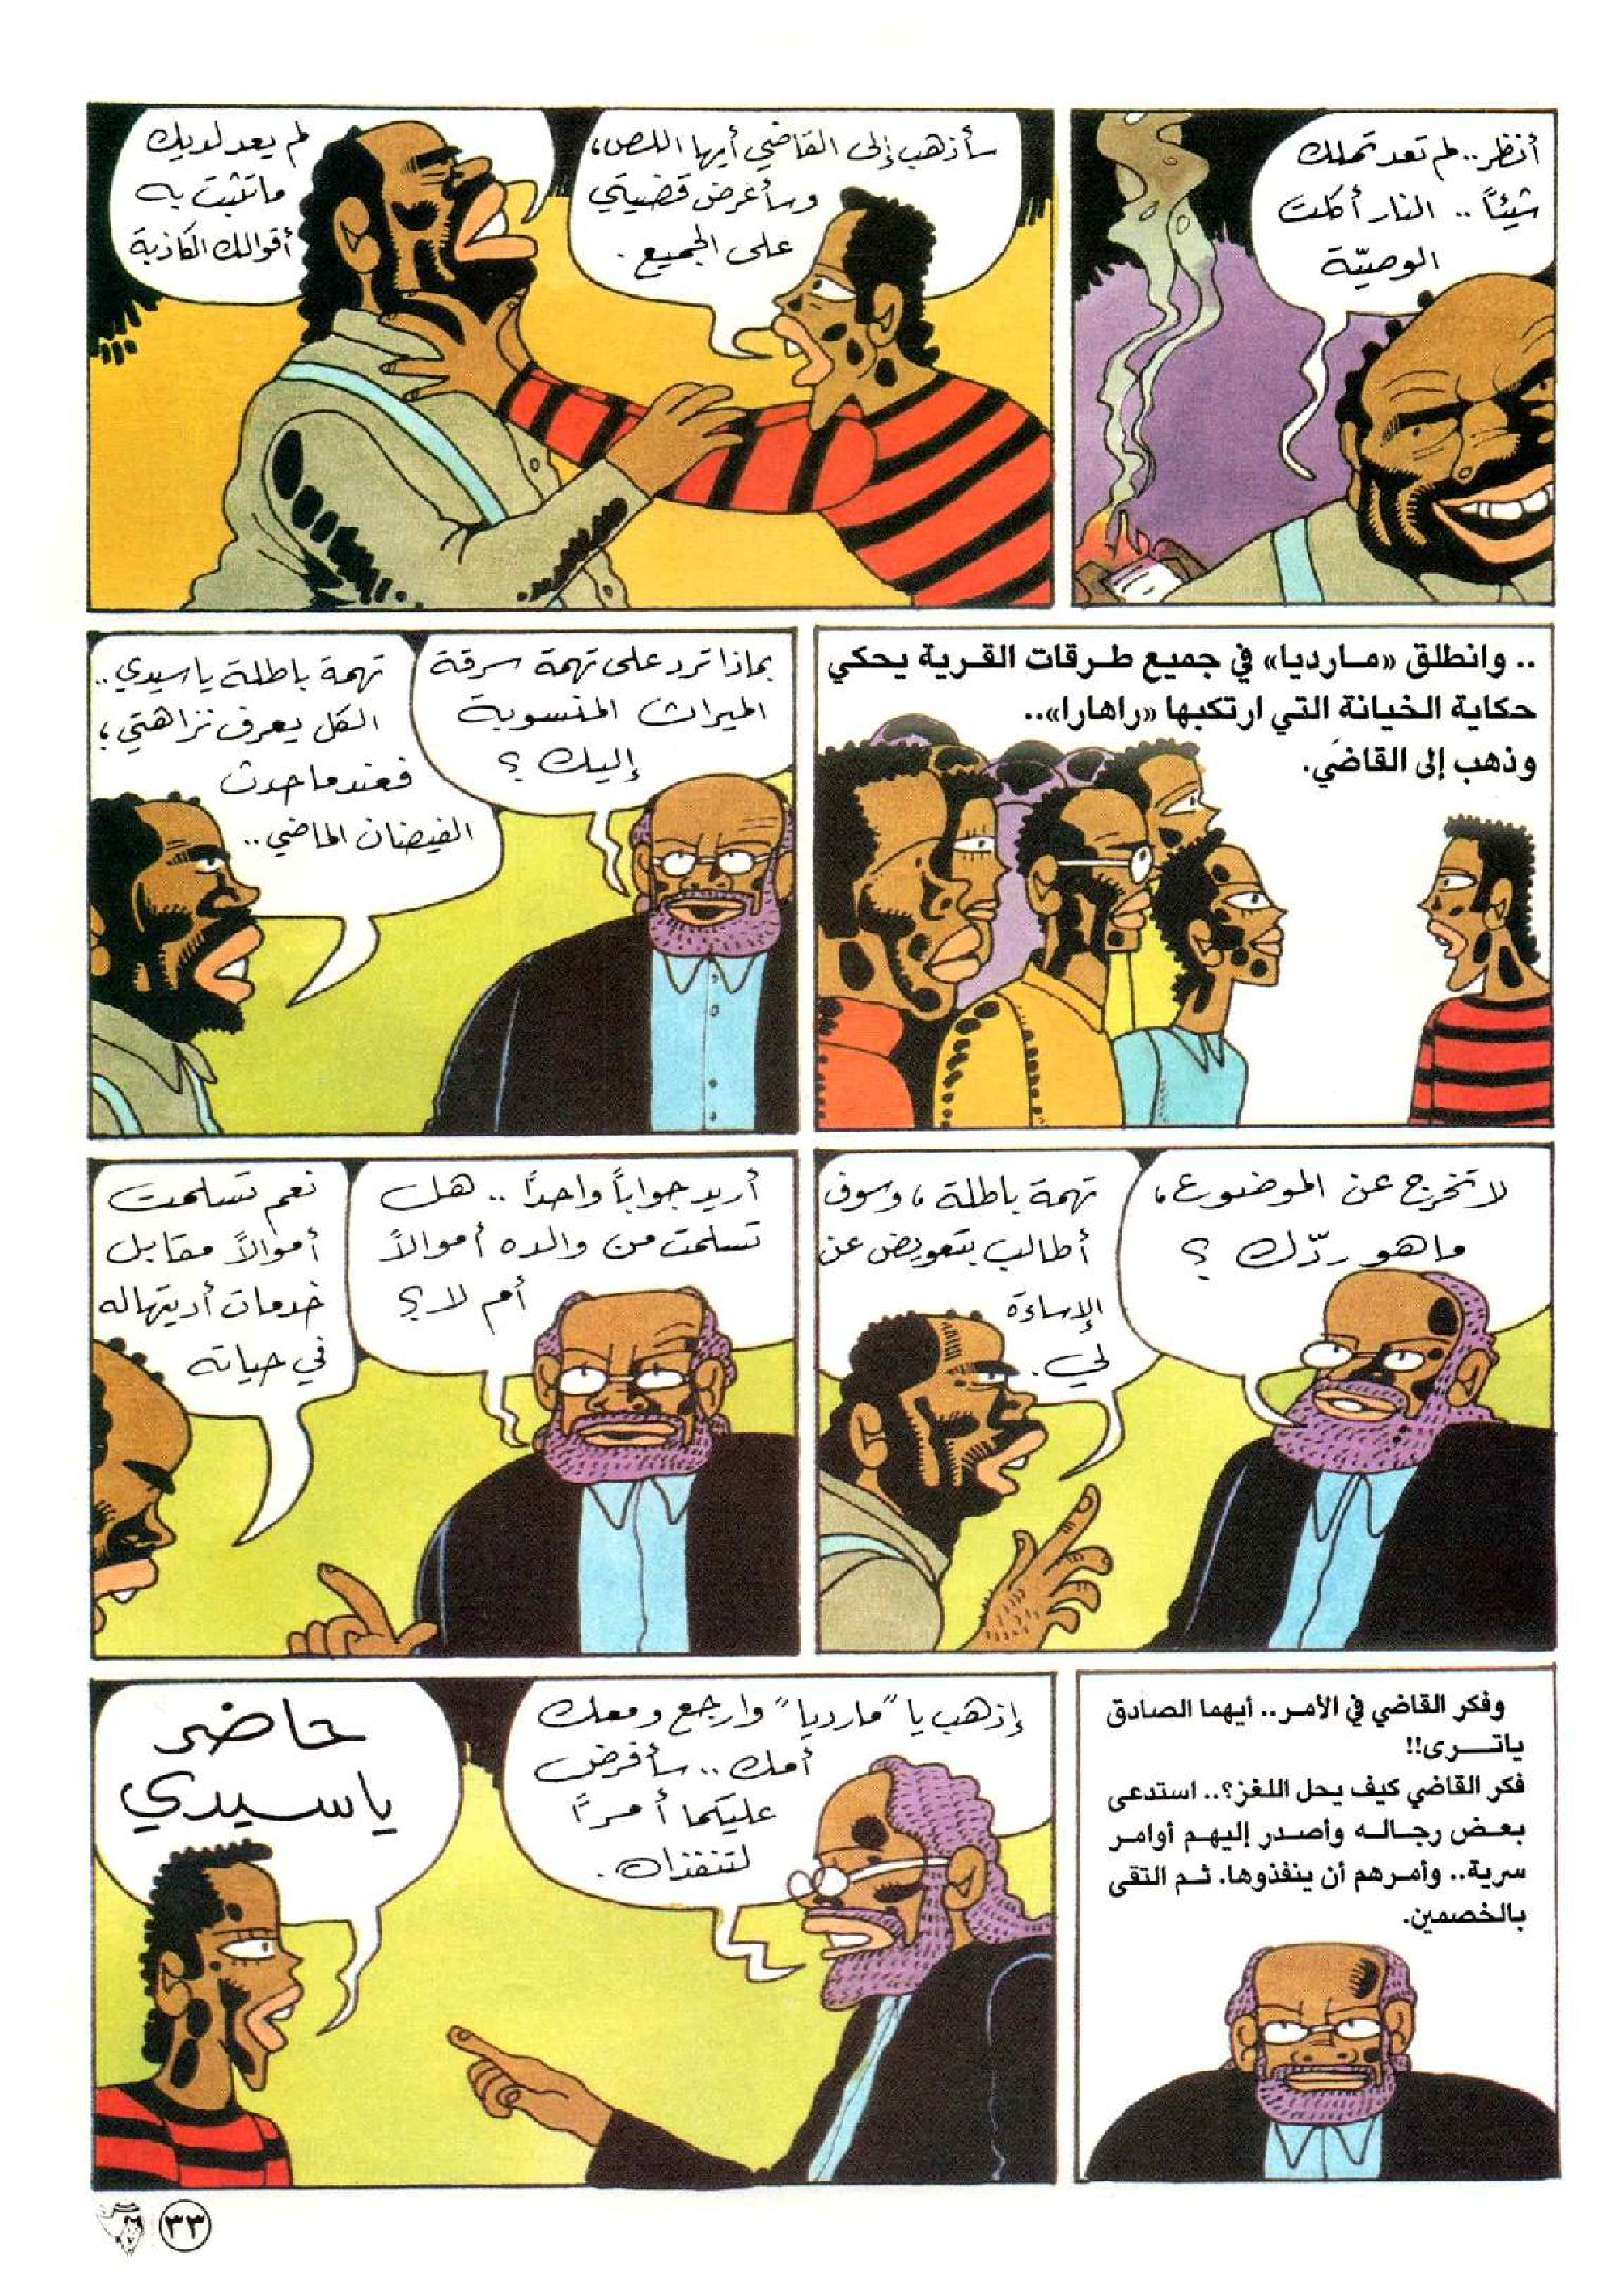 أنظر.. لم تعد تملك
شيئاً .. النار أكلت
الوصيّة
سأذهب إلى القاضي أيها اللص،
وسأعرض قضيتي
على الجميع.
لم يعد لديك
ما تثبت به
أقوالك الكاذبة
.. وانطلق «مارديا» في جميع طرقات القرية يحكي
حكاية الخيانة التي ارتكبها «راهارا»..
وذهب إلى القاضي.
بماذا ترد على تهمة سرقة
الميراث المنسوبة
إليك ؟
تهمة باطلة يا سيدي..
الكل يعرف نزاهتي،
فعندما حدث
الفيضان الماضي..
لا تخرج عن الموضوع،
ما هو ردّك ؟
تهمة باطلة، وسوف
أطالب بتعويض عن
الإساءة
لي.
أريد جواباً واحداً .. هل
تسلمت من والده أموالاً
أم لا ؟
نعم تسلمت
أموالاً مقابل
خدمات أديتها له
في حياته
وفكر القاضي في الأمر.. أيهما الصادق
ياترى!!
فكر القاضي كيف يحل اللغز؟.. استدعى
بعض رجاله وأصدر إليهم أوامر
سرية.. وأمرهم أن ينفذوها. ثم التقى
بالخصمين.
إذهب يا "مارديا" وارجع ومعك
أمك .. سأفرض
عليكما أمراً
لتنفذاه.
حاضر
يا سيدي
٣٣